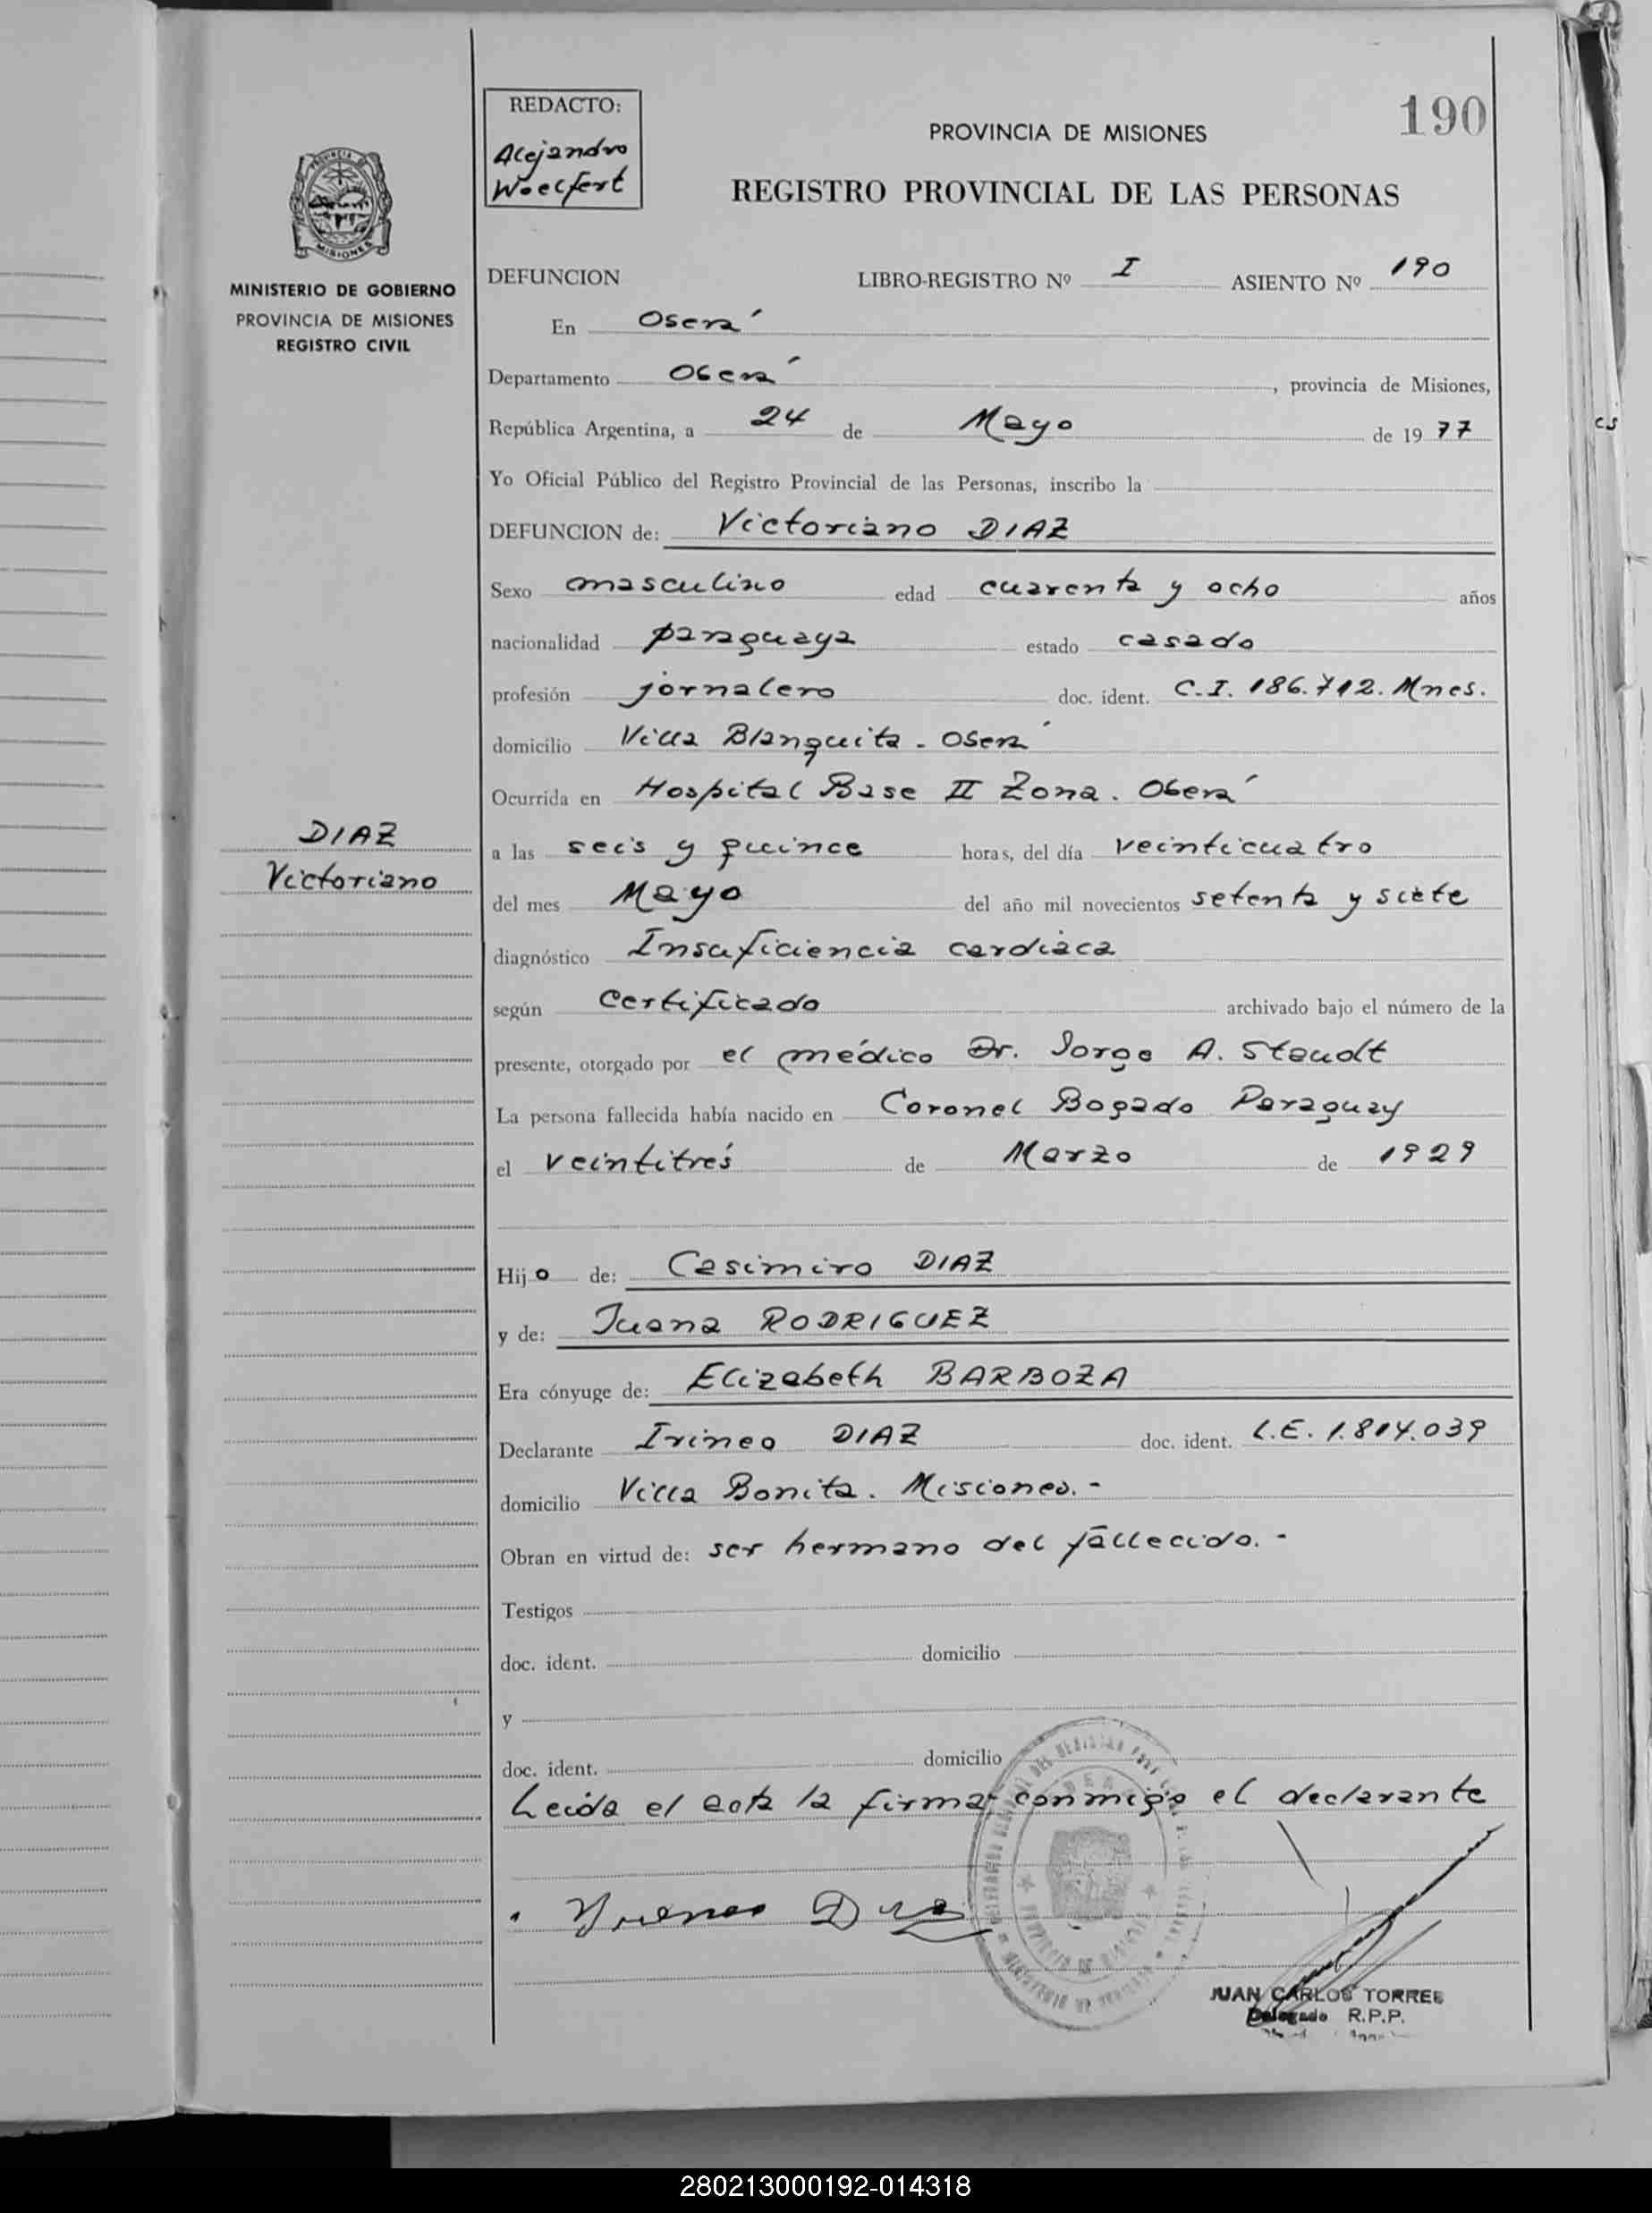 190
REDACTO:
Alejandro
Woelfert
PROVINCIA DE MISIONES
REGISTRO PROVINCIAL DE LAS PERSONAS
PROVINCIA DE
MISIONES
MINISTERIO DE GOBIERNO
PROVINCIA DE MISIONES
REGISTRO CIVIL
DEFUNCION LIBRO-REGISTRO Nº I ASIENTO Nº 190
En Oberá
Departamento Oberá, provincia de Misiones,
República Argentina, a 24 de Mayo de 1977
Yo Oficial Público del Registro Provincial de las Personas, inscribo la
DEFUNCION de: Victoriano DIAZ
Sexo masculino edad cuarenta y ocho años
nacionalidad paraguaya estado casado
profesión jornalero doc. ident. C.I. 186.712. Mnes.
domicilio Villa Blanquita - Oberá
Ocurrida en Hospital Base II Zona. Oberá
DIAZ
Victoriano
a las seis y quince horas, del día veinticuatro
del mes Mayo del año mil novecientos setenta y siete
diagnóstico Insuficiencia cardiaca
según certificado archivado bajo el número de la
presente, otorgado por el médico Dr. Jorge A. Staudt
La persona fallecida había nacido en Coronel Bogado Paraguay
el veintitrés de Marzo de 1929
Hijo de: Casimiro DIAZ
y de: Juana RODRIGUEZ
Era cónyuge de: Elizabeth BARBOZA
Declarante Irineo DIAZ doc. ident. L.E. 1.814.039
domicilio Villa Bonita. Misiones.-
Obran en virtud de: ser hermano del fallecido.-
Testigos
doc. ident. domicilio
y
doc. ident. domicilio
Leida el acta la firma conmigo el declarante
JUAN CARLOS TORRES
Delegado R.P.P.
280213000192-014318